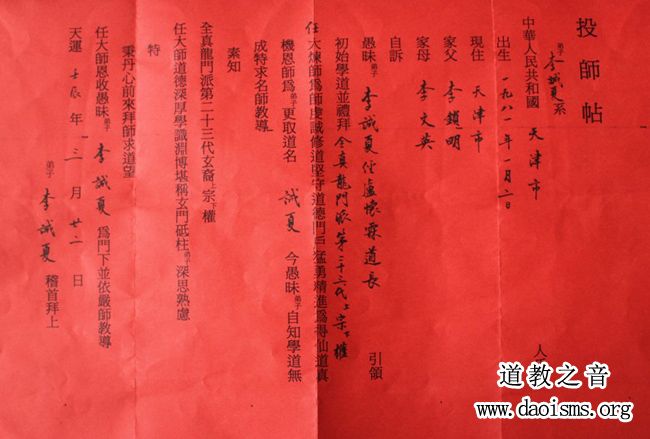 投師帖
弟子李誠夏系
中華人民共和國 天津市 人
出生 一九八一年一月二日
現住 天津市
家父 李鎧明
家母 李文英
自訴
愚昧弟子 李誠夏 經盧懷霖道長 引領
初始學道並禮拜 全真龍門派第二十三代上宗下權
任大煉師爲師虔誠修道堅守道德門戶猛勇精進爲得仙道真
機恩師爲弟子更取道名 誠夏 今愚昧弟子自知學道無
成特求名師教導
素知
全真龍門派第二十三代玄裔上宗下權
任大師道德深厚學識淵博堪稱玄門砥柱弟子深思熟慮
特
秉丹心前來拜師求道望
任大師恩收愚昧弟子 李誠夏 爲門下並依嚴師教導
天運 壬辰年 三月 廿二日
弟子 李誠夏 稽首拜上
道教之音
www.daoisms.org